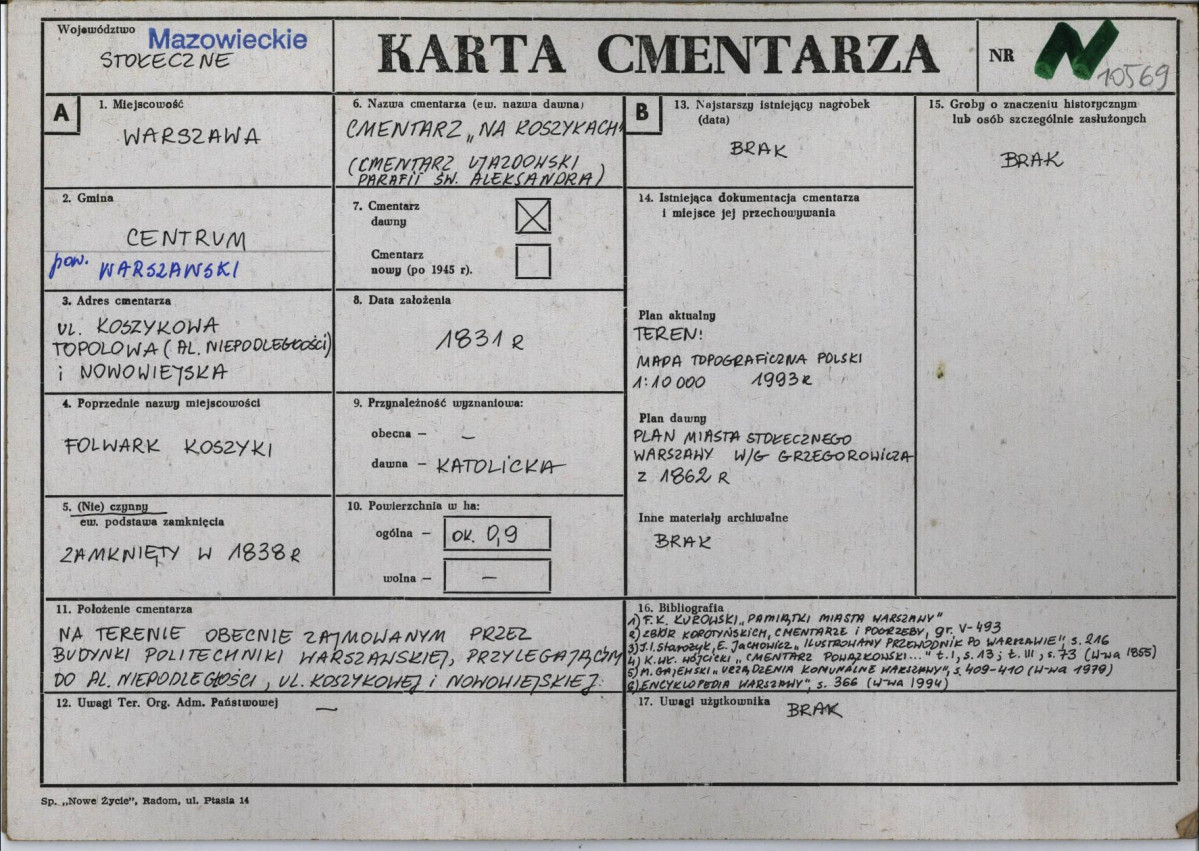 Województwo Mazowieckie
STOŁECZNE
KARTA CMENTARZA
NR N 10569
A
1. Miejscowość
WARSZAWA
2. Gmina
CENTRUM
pow. WARSZAWSKI
3. Adres cmentarza
UL. KOSZYKOWA
TOPOLOWA (AL. NIEPODLEGŁOŚCI)
i NOWOWIEJSKA
4. Poprzednie nazwy miejscowości
FOLWARK KOSZYKI
5. (Nie) czynny
ew. podstawa zamknięcia
ZAMKNIĘTY W 1838 R
6. Nazwa cmentarza (ew. nazwa dawna)
CMENTARZ „NA KOSZYKACH"
(CMENTARZ UJAZDOWSKI
PARAFII ŚW. ALEKSANDRA)
7. Cmentarz
dawny
Cmentarz
nowy (po 1945 r).
8. Data założenia
1831 R
9. Przynależność wyznaniowa:
obecna — –
dawna — KATOLICKA
10. Powierzchnia w ha:
ogólna — OK. 0,9
wolna — –
11. Położenie cmentarza
NA TERENIE OBECNIE ZAJMOWANYM PRZEZ
BUDYNKI POLITECHNIKI WARSZAWSKIEJ, PRZYLEGAJĄCYM
DO AL. NIEPODLEGŁOŚCI, UL. KOSZYKOWEJ i NOWOWIEJSKIEJ.
12. Uwagi Ter. Org. Adm. Państwowej –
B
13. Najstarszy istniejący nagrobek
(data)
BRAK
14. Istniejąca dokumentacja cmentarza
i miejsce jej przechowywania
Plan aktualny
TEREN:
MAPA TOPOGRAFICZNA POLSKI
1:10 000 1993 R
Plan dawny
PLAN MIASTA STOŁECZNEGO
WARSZAWY W/G GRZEGOROWICZA
Z 1862 R
Inne materiały archiwalne
BRAK
15. Groby o znaczeniu historycznym
lub osób szczególnie zasłużonych
BRAK
16. Bibliografia
1) F.K. KUROWSKI „PAMIĄTKI MIASTA WARSZAWY"
2) ZBIÓR KOROTYŃSKICH, CMENTARZE I POGRZEBY, gr. V-493
3) J.I. Starożyk, E. Jachowicz „ILUSTROWANY PRZEWODNIK PO WARSZAWIE", s. 216
4) K.Wł. WÓJCICKI „CMENTARZ POWĄZKOWSKI..." t. I, s. 13; t. III, s. 73 (W-wa 1855)
5) M. GAJEWSKI „URZĄDZENIA KOMUNALNE WARSZAWY", s. 409-410 (W-wa 1979)
6) ENCYKLOPEDIA WARSZAWY", s. 366 (W-wa 1994)
17. Uwagi użytkownika BRAK
Sp. „Nowe Życie", Radom, ul. Ptasia 14